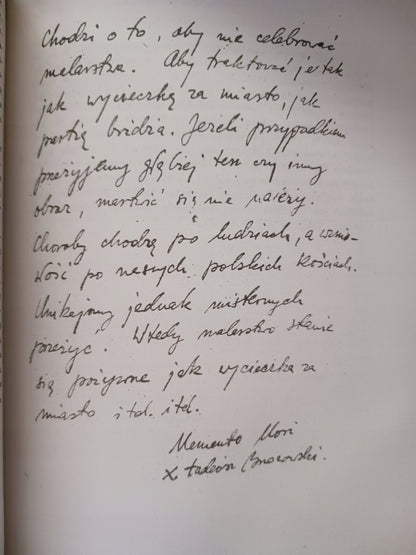 Chodzi o to, aby nie celebrować
malarstwa. Aby traktować je tak
jak wycieczkę za miasto, jak
partię bridża. Jeżeli przypadkiem
przeżyjemy głębiej ten czy inny
obraz, martwić się nie należy.
Choroby chodzą po ludziach, a wznio-
słość po naszych polskich kościach.
Unikajmy jednak
przeżyć. Wtedy malarstwo stanie
się pożyteczne jak wycieczka za
miasto itd. itd.
Memento Mori
x Tadeusz Brzozowski.